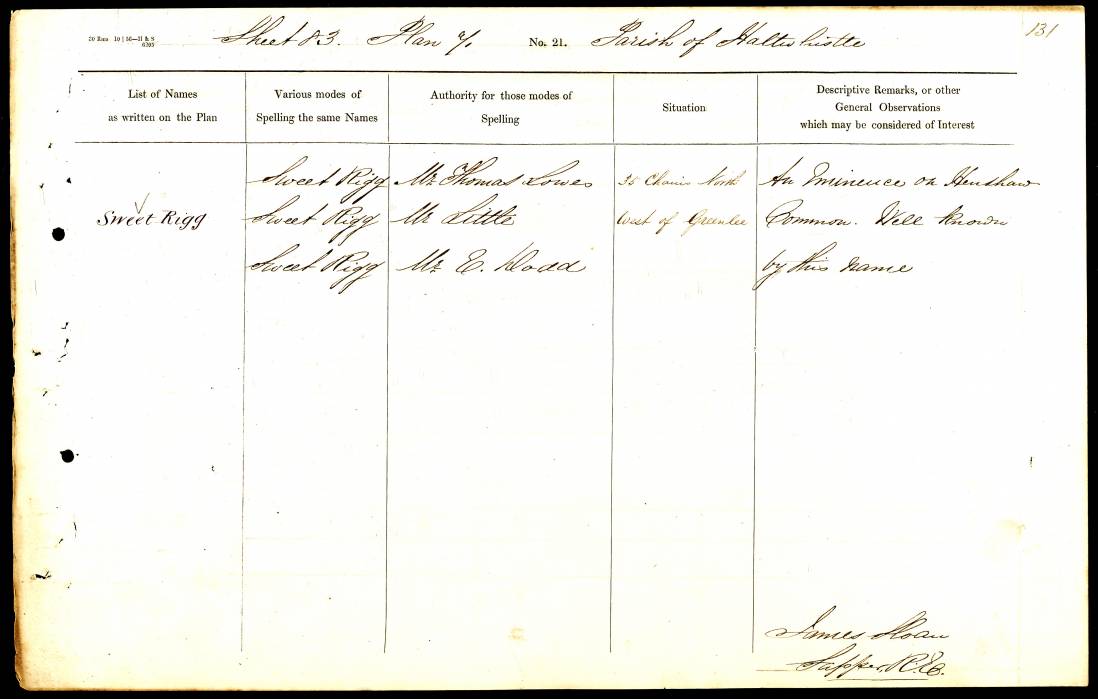 20 Rms 10 | 56—H & S
6205
Sheet 83. Plan No. 21. Parish of Haltwhistle
131
List of Names
as written on the Plan
Various modes of
Spelling the same Names
Authority for those modes of
Spelling
Situation
Descriptive Remarks, or other
General Observations
which may be considered of Interest
Sweet Rigg Mr Thomas Lowes 35 Chains North An Eminence on Henshaw
Sweet Rigg Sweet Rigg Mr Little West of Greenlee Common. Well known
Sweet Rigg Mr E. Dodd by this name
James Sloan
Sapper, R.E.